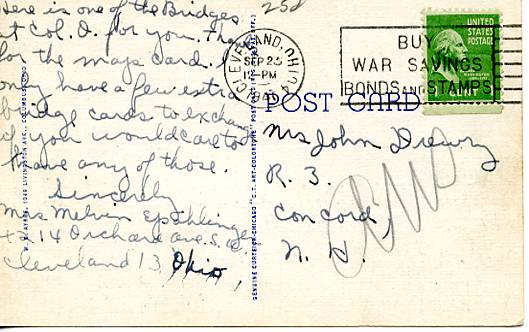 Here is one of the Bridges
at Col. O. for you. Thanks
for the map card. I
only have a few extra
bridge cards to exchange
if you would care to
have any of those.
Sincerely
Mrs Melvin
14 Orchard ave. S.
Cleveland 13, Ohio,
25¢
CLEVELAND, OHIO
SEP 25
12-PM
BUY
WAR SAVINGS
BONDS AND STAMPS
UNITED
STATES
POSTAGE
POST CARD
Mrs John Drewry
R. 3.
Concord,
N. H.
GENUINE CURTEICH-CHICAGO "C.T. ART-COLORTONE" POST CARD